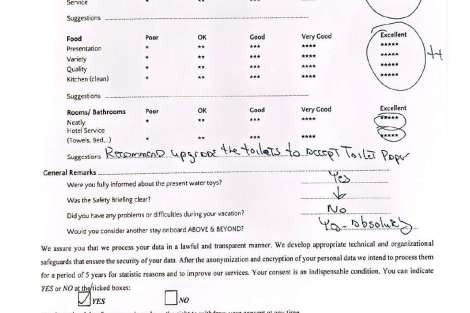 Service
Suggestions
Food Poor OK Good Very Good Excellent
Presentation * ** *** **** *****
Variety * ** *** **** *****
Quality * ** *** **** *****
Kitchen (clean) * ** *** **** *****
Suggestions
Rooms/ Bathrooms Poor OK Good Very Good Excellent
Neatly * ** *** **** *****
Hotel Service
(Towels, Bed,..) * ** *** **** *****
Suggestions Recommend upgrade the toilets to accept Toilet Paper
General Remarks
Were you fully informed about the present water toys? Yes
Was the Safety Briefing clear? ↓
Did you have any problems or difficulties during your vacation? No
Would you consider another stay onboard ABOVE & BEYOND? Yes - absolutely
We assure you that we process your data in a lawful and transparent manner. We develop appropriate technical and organizational
safeguards that ensure the security of your data. After the anonymization and encryption of your personal data we intend to process them
for a period of 5 years for statistic reasons and to improve our services. Your consent is an indispensable condition. You can indicate
YES or NO at the ticked boxes:
YES NO